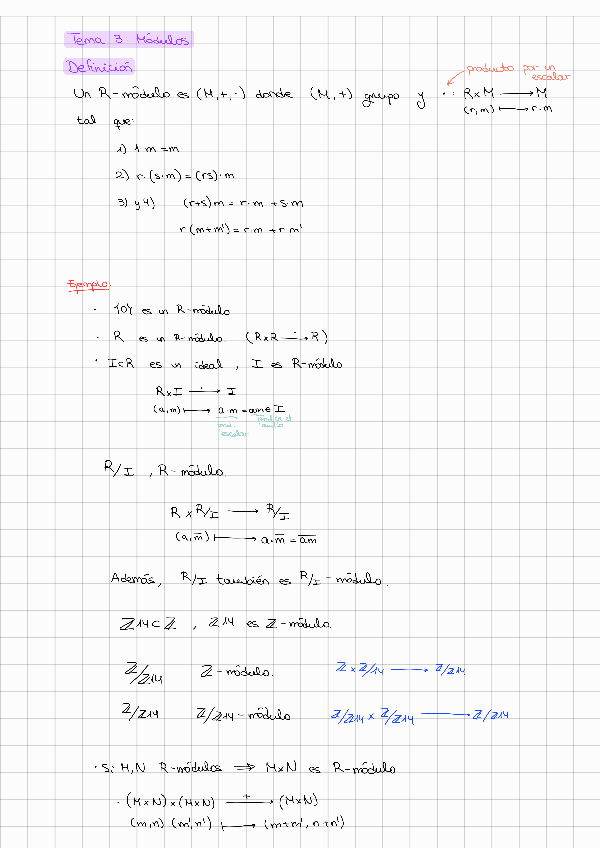 Tema 3: Módulos
Definición
producto por un
escalar
Un R-módulo es (M,+,·) donde (M,+) grupo y · : R×M ⟶ M
(r,m) ⟼ r·m
tal que:
1) 1·m=m
2) r·(s·m)=(rs)·m
3) y 4) (r+s)m = r·m + s·m
r(m+m')=r·m+r·m'
Ejemplo:
· {0} es un R-módulo
· R es un R-módulo (R×R ⟶ R)
· I⊂R es un ideal, I es R-módulo
R×I ⟶ I
(a,m) ⟼ a·m = am ∈ I
escalar
R/I, R-módulo.
R × R/I ⟶ R/I
(a,m̅) ⟼ a·m̅ = a̅m̅
Además, R/I también es R/I-módulo.
ℤ14⊂ℤ, ℤ14 es ℤ-módulo.
ℤ/ℤ14 ℤ-módulo. ℤ×ℤ/14 ⟶ ℤ/ℤ14
ℤ/ℤ14 ℤ/ℤ14-módulo ℤ/ℤ14 × ℤ/ℤ14 ⟶ ℤ/ℤ14
· Si M,N R-módulos ⟹ M×N es R-módulo
· (M×N)×(M×N) +⟶ (M×N)
(m,n) (m',n') ⟼ (m+m', n+n')